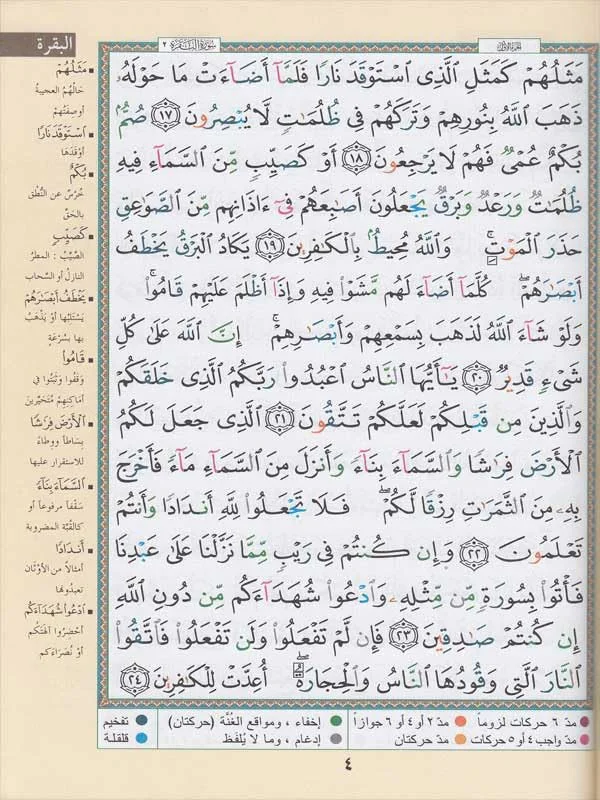 البقرة
سورة البقرة ٢
الجزء الأول
مَثَلُهُمْ كَمَثَلِ الَّذِى اسْتَوْقَدَ نَارًا فَلَمَّآ أَضَآءَتْ مَا حَوْلَهُۥ
ذَهَبَ اللَّهُ بِنُورِهِمْ وَتَرَكَهُمْ فِى ظُلُمَٰتٍ لَّا يُبْصِرُونَ ١٧ صُمٌّۢ
بُكْمٌ عُمْىٌ فَهُمْ لَا يَرْجِعُونَ ١٨ أَوْ كَصَيِّبٍ مِّنَ السَّمَآءِ فِيهِ
ظُلُمَٰتٌ وَرَعْدٌ وَبَرْقٌ يَجْعَلُونَ أَصَٰبِعَهُمْ فِىٓ ءَاذَانِهِم مِّنَ الصَّوَٰعِقِ
حَذَرَ الْمَوْتِ ۚ وَاللَّهُ مُحِيطٌۢ بِالْكَٰفِرِينَ ١٩ يَكَادُ الْبَرْقُ يَخْطَفُ
أَبْصَٰرَهُمْ ۖ كُلَّمَآ أَضَآءَ لَهُم مَّشَوْا۟ فِيهِ وَإِذَآ أَظْلَمَ عَلَيْهِمْ قَامُوا۟ ۚ
وَلَوْ شَآءَ اللَّهُ لَذَهَبَ بِسَمْعِهِمْ وَأَبْصَٰرِهِمْ ۚ إِنَّ اللَّهَ عَلَىٰ كُلِّ
شَىْءٍ قَدِيرٌ ٢٠ يَٰٓأَيُّهَا النَّاسُ اعْبُدُوا۟ رَبَّكُمُ الَّذِى خَلَقَكُمْ
وَالَّذِينَ مِن قَبْلِكُمْ لَعَلَّكُمْ تَتَّقُونَ ٢١ الَّذِى جَعَلَ لَكُمُ
الْأَرْضَ فِرَٰشًا وَالسَّمَآءَ بِنَآءً وَأَنزَلَ مِنَ السَّمَآءِ مَآءً فَأَخْرَجَ
بِهِۦ مِنَ الثَّمَرَٰتِ رِزْقًا لَّكُمْ ۖ فَلَا تَجْعَلُوا۟ لِلَّهِ أَندَادًا وَأَنتُمْ
تَعْلَمُونَ ٢٢ وَإِن كُنتُمْ فِى رَيْبٍ مِّمَّا نَزَّلْنَا عَلَىٰ عَبْدِنَا
فَأْتُوا۟ بِسُورَةٍ مِّن مِّثْلِهِۦ وَادْعُوا۟ شُهَدَآءَكُم مِّن دُونِ اللَّهِ
إِن كُنتُمْ صَٰدِقِينَ ٢٣ فَإِن لَّمْ تَفْعَلُوا۟ وَلَن تَفْعَلُوا۟ فَاتَّقُوا۟
النَّارَ الَّتِى وَقُودُهَا النَّاسُ وَالْحِجَارَةُ ۖ أُعِدَّتْ لِلْكَٰفِرِينَ ٢٤
مَثَلُهُمْ
حالُهُمُ العجيبةُ
أو صِفَتُهُمْ
اسْتَوْقَدَ نَارًا
أَوْقَدَهَا
بُكْمٌ
خُرْسٌ عن النُّطْقِ
بالحَقِّ
كَصَيِّبٍ
الصَّيِّبُ : المطرُ
النازلُ أو السَّحابُ
يَخْطَفُ أَبْصَٰرَهُمْ
يَسْتَلِبُهَا أو يَذْهَبُ
بها بسُرْعَةٍ
قَامُوا۟
وَقَفُوا وثَبَتُوا في
أماكِنِهِمْ مُتَحَيِّرِينَ
الْأَرْضَ فِرَٰشًا
بساطاً ووِطاءً
للاستقرارِ عليها
السَّمَآءَ بِنَآءً
سَقْفاً مرفوعاً أو
كالقُبَّةِ المضروبةِ
أَندَادًا
أمثالاً من الأوثانِ
تعبدُونَها
ادْعُوا۟ شُهَدَآءَكُم
أحضِرُوا آلهَتَكُم
أو نُصَرَاءَكم
مدّ ٦ حركات لزوماً مدّ ٢ أو ٤ أو ٦ جوازاً إخفاء ، ومواقع الغُنَّة (حركتان) تفخيم
مدّ واجب ٤ أو ٥ حركات مدّ حركتان إدغام ، وما لا يُلفَظ قلقلة
٤